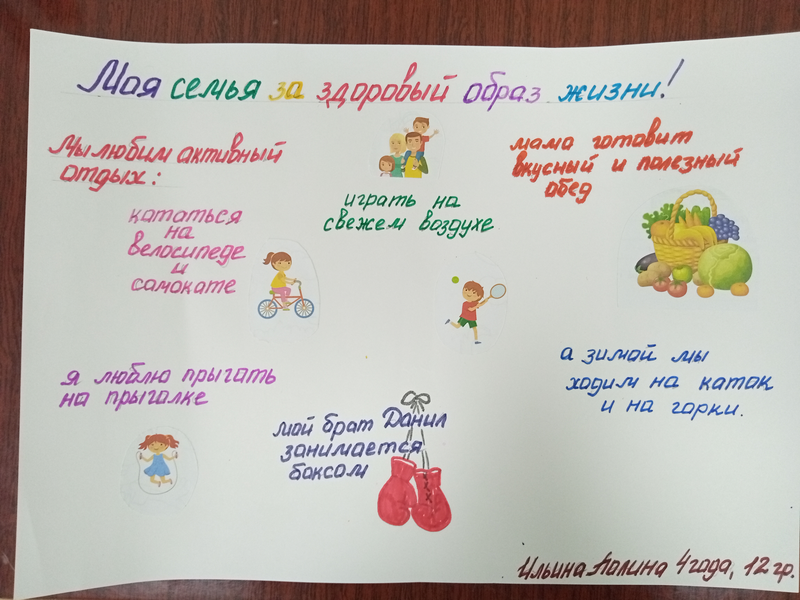 Моя семья за здоровый образ жизни!
Мы любим активный
отдых:
кататься
на
велосипеде
и
самокате
играть на
свежем воздухе
мама готовит
вкусный и полезный
обед
я люблю прыгать
на прыгалке
мой брат Данил
занимается
боксом
а зимой мы
ходим на каток
и на горки.
Ильина Полина 4 года, 12 гр.